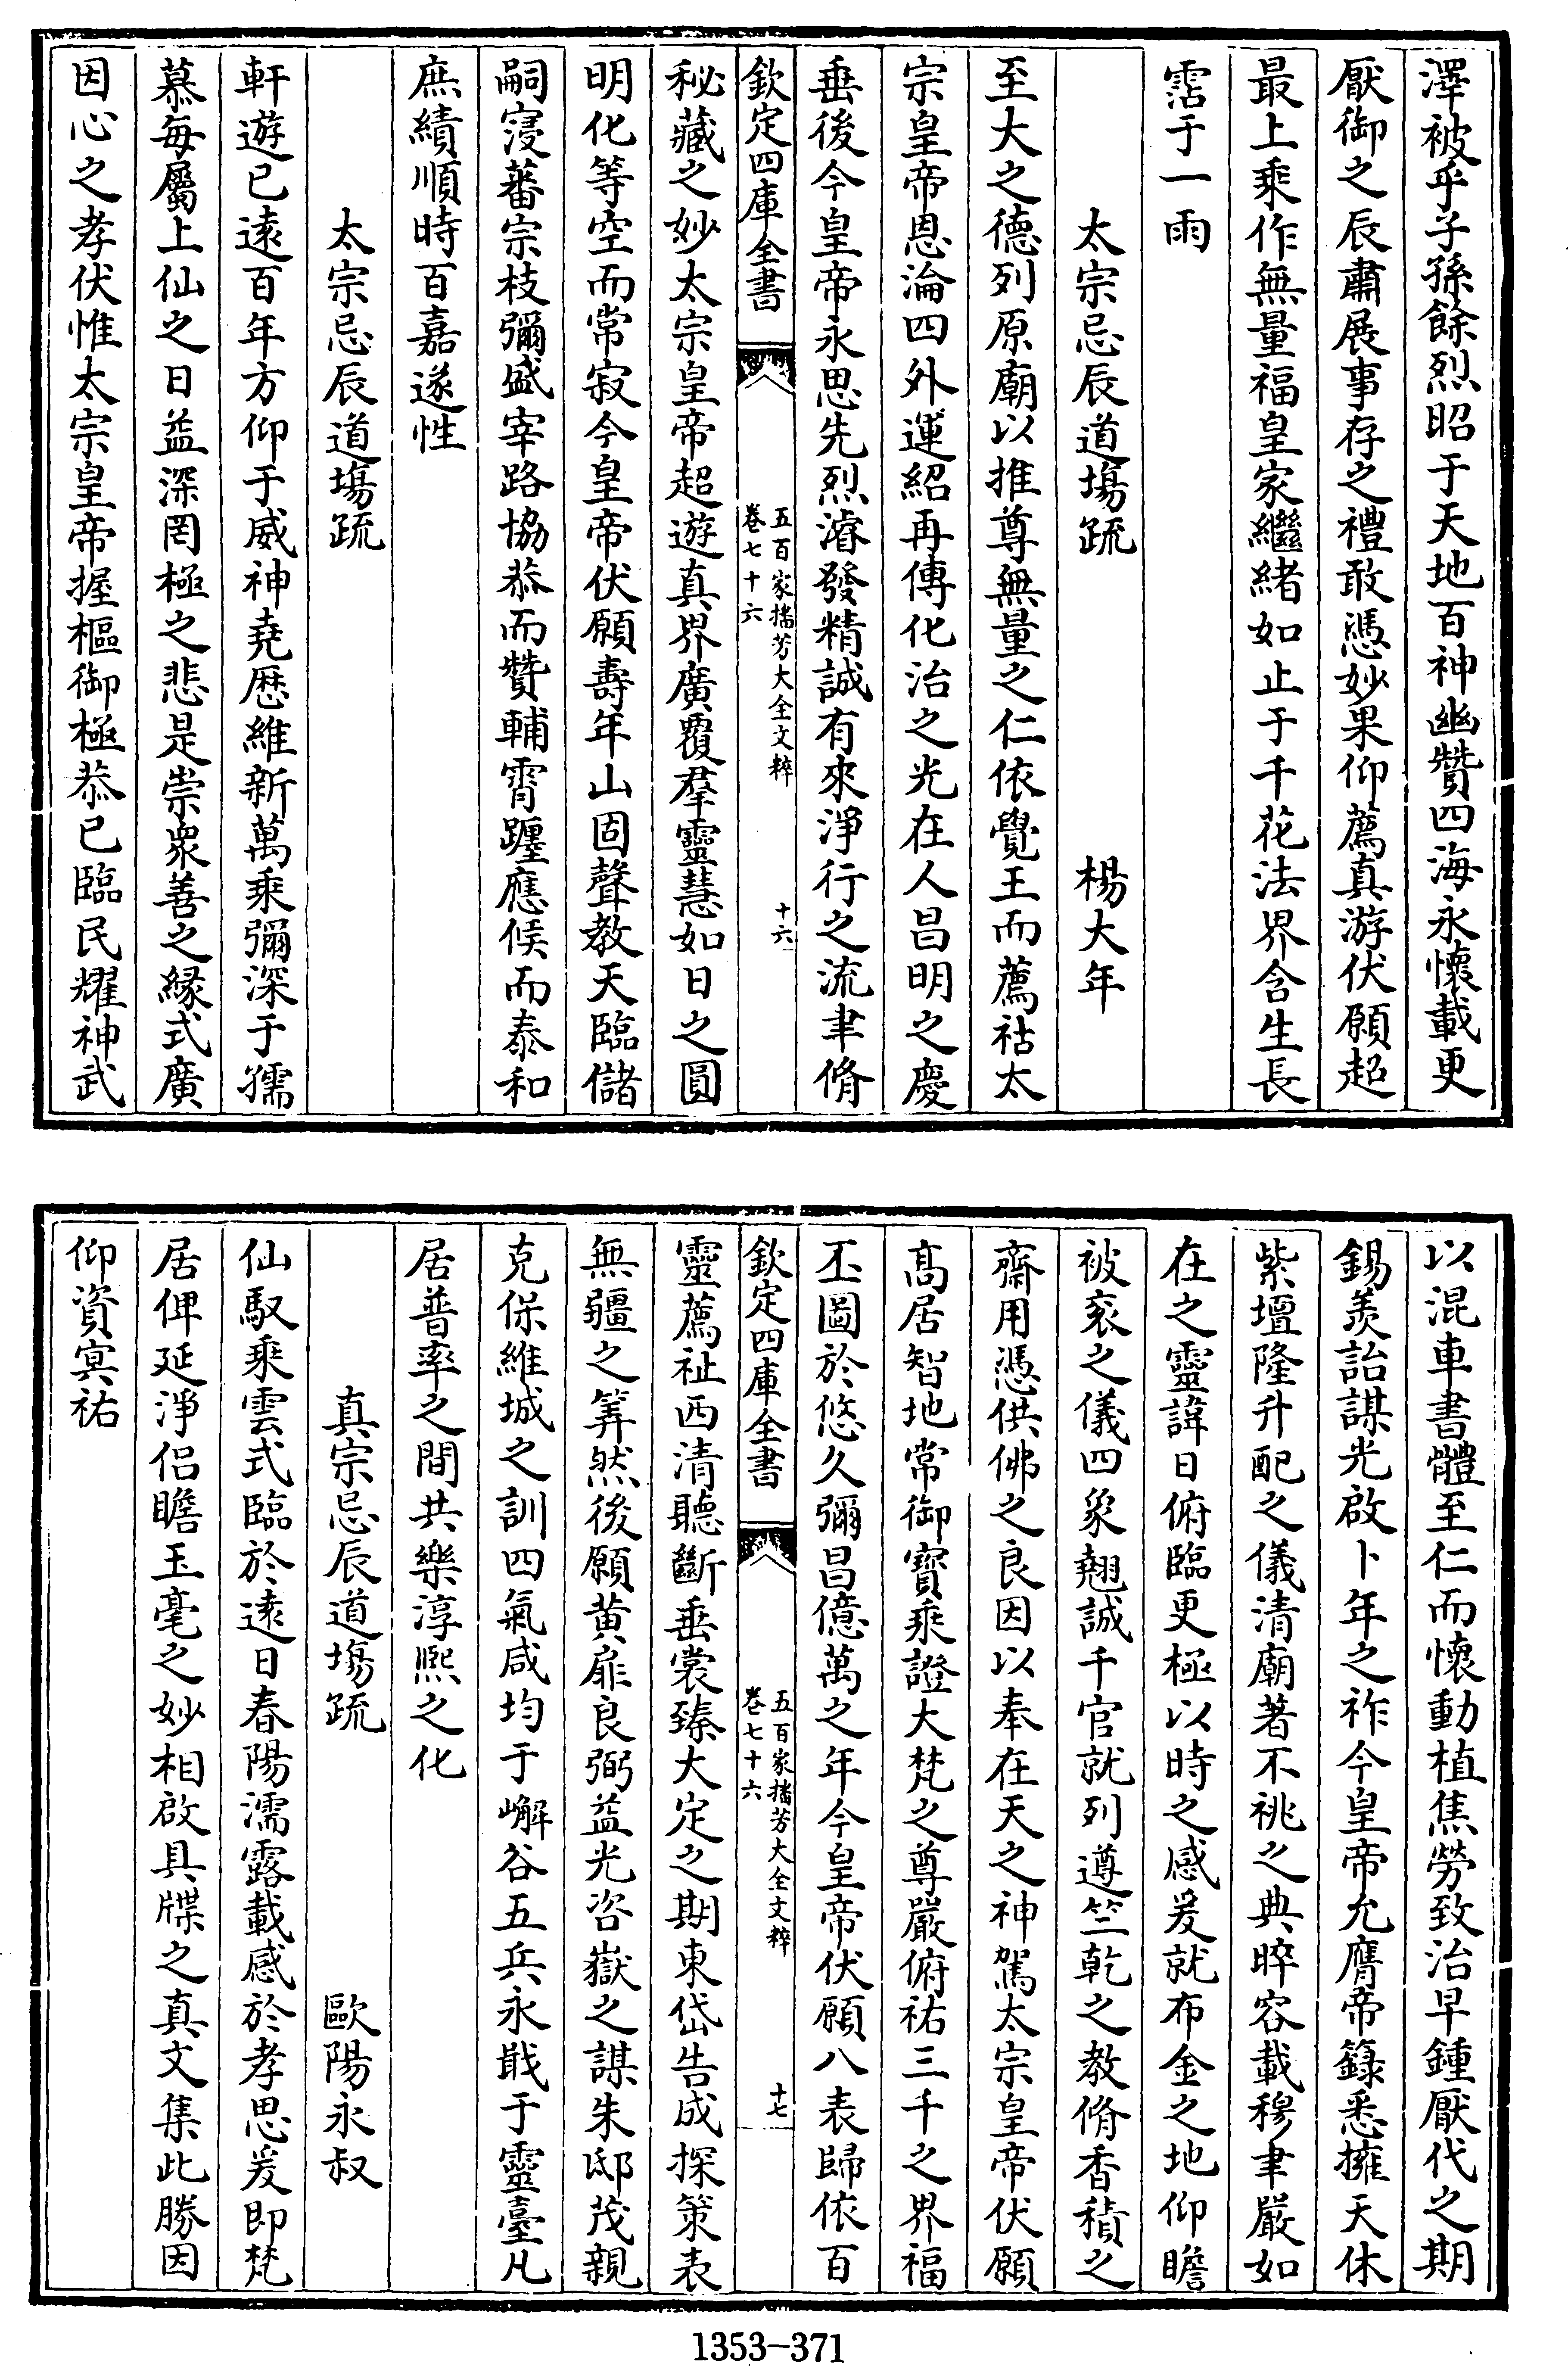 澤被乎子孫餘烈昭于天地百神幽贊四海永懷載更
厭御之辰肅展事存之禮敢憑妙果仰薦真游伏願超
最上乘作無量福皇家繼緒如止于千花法界含生長
霑于一雨
太宗忌辰道塲疏　楊大年
至大之德列原廟以推尊無量之仁依覺王而薦祜太
宗皇帝恩淪四外運紹再傳化治之光在人昌明之慶
垂後今皇帝永思先烈濬發精誠有來淨行之流聿脩
欽定四庫全書　五百家播芳大全文粹　卷七十六　十六
秘藏之妙太宗皇帝超遊真界廣覆羣靈慧如日之圓
明化等空而常寂今皇帝伏願壽年山固聲教天臨儲
嗣寖蕃宗枝彌盛宰路協恭而贊輔霄躔應候而泰和
庶績順時百嘉遂性
太宗忌辰道塲疏
軒遊已遠百年方仰于威神堯厯維新萬乘彌深于孺
慕每屬上仙之日益深罔極之悲是崇衆善之縁式廣
因心之孝伏惟太宗皇帝握樞御極恭已臨民耀神武
以混車書體至仁而懷動植焦勞致治早鍾厭代之期
錫羨詒謀光啟卜年之祚今皇帝允膺帝籙悉擁天休
紫壇隆升配之儀清廟著不祧之典晬容載穆聿嚴如
在之靈諱日俯臨更極以時之感爰就布金之地仰瞻
被衮之儀四象翹誠千官就列遵竺乾之教脩香積之
齋用憑供佛之良因以奉在天之神駕太宗皇帝伏願
髙居智地常御寳乘證大梵之尊嚴俯祐三千之界福
丕圖於悠久彌昌億萬之年今皇帝伏願八表歸依百
欽定四庫全書　五百家播芳大全文粹　卷七十六　十七
靈薦祉西清聽斷垂裳臻大定之期東岱告成探策表
無疆之筭然後願黄扉良弼益光咨嶽之謀朱邸茂親
克保維城之訓四氣咸均于嶰谷五兵永戢于靈臺凡
居普率之間共樂淳熙之化
真宗忌辰道塲疏　歐陽永叔
仙馭乘雲式臨於逺日春陽濡露載感於孝思爰即梵
居俾延淨侣瞻玉毫之妙相啟具牒之真文集此勝因
仰資冥祐
1353-371